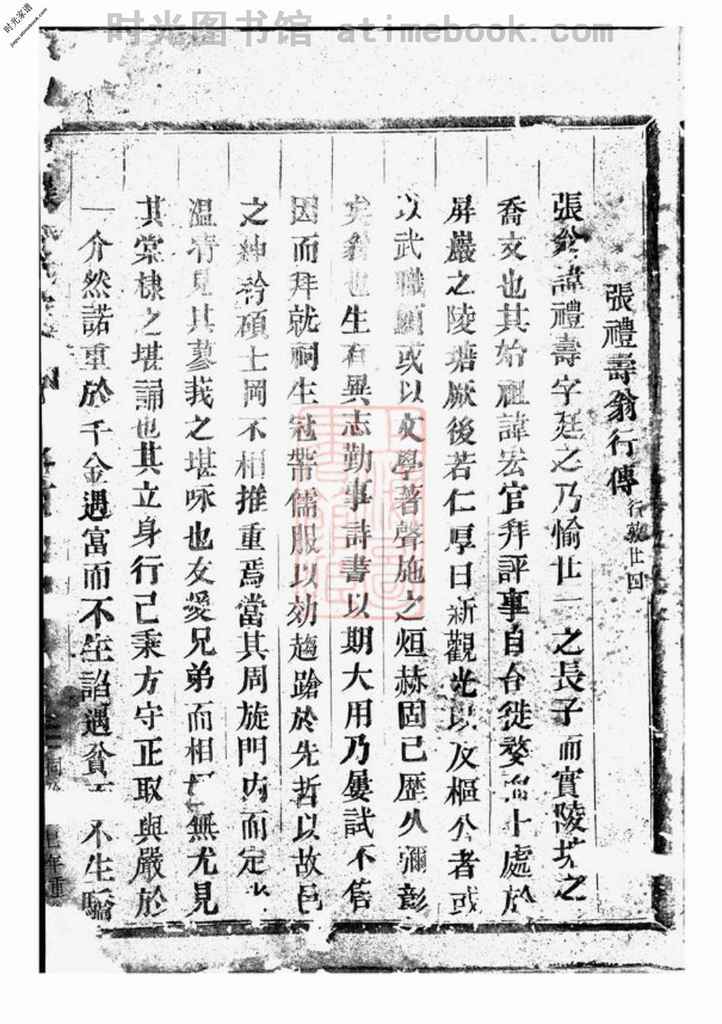 时光图书馆 atimebook.com
时光家谱
jiapu.atimebook.com
張禮壽翁行傳
張翁諱禮壽字廷之乃愉廿一之長子而實陵坑之
喬交也其始祖諱宏官拜評事自台徙婺 卜處於
屏巖之陵塘厥後若仁厚日新觀光以及樞公者或
以武職顯或以文學著聲施之烜赫固已歷久彌彰
矣翁也生有異志勤事詩書以期大用乃屢試不售
因而拜就祠生冠帶儒服以効趨蹌於先哲以故邑
之紳衿碩士罔不相推重焉當其周旋門內而定
溫凊見其蓼莪之堪咏也友愛兄弟而相 無尤見
其棠棣之堪誦也其立身行己秉方守正取與嚴於
一介然諾重於千金遇富而不生諂遇貧 不生驕